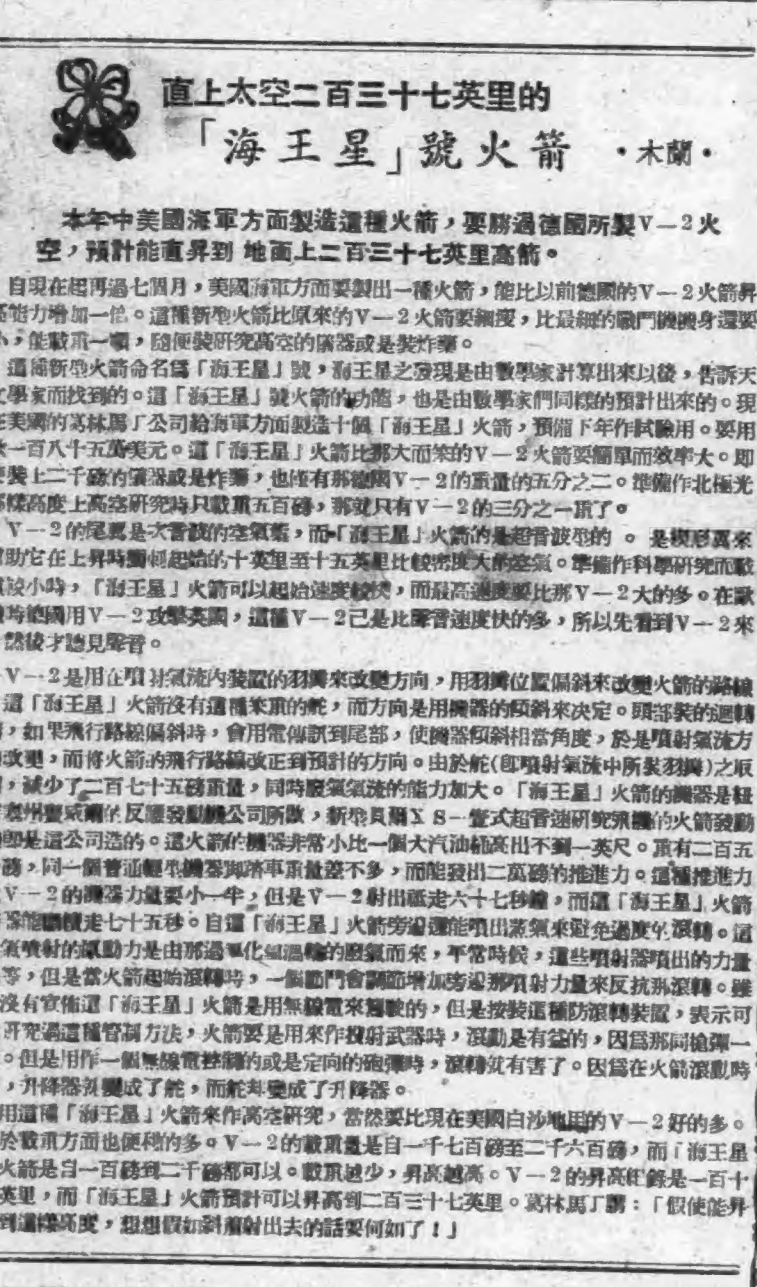 直上太空二百三十七英里的
「海王星」號火箭 ·木蘭·
本年中美國海軍方面製造這種火箭，要勝過德國所製V—2火
空，預計能直昇到 地面上二百三十七英里高箭。
自現在起再過七個月，美國海軍方面要製出一種火箭，能比以前德國的V—2火箭昇
高能力增加一倍。這種新型火箭比原來的V—2火箭要細瘦，比最細的戰鬥機機身還要
小，能載重一噸，隨便裝研究高空的儀器或是裝炸藥。
這種新型火箭命名爲「海王星」號，海王星之發現是由數學家計算出來以後，告訴天
文學家而找到的。這「海王星」號火箭的功能，也是由數學家們同樣的預計出來的。現
在美國的葛林馬丁公司給海軍方面製造十個「海王星」火箭，預備下年作試驗用。要用
一百八十五萬美元。這「海王星」火箭比那大而笨的V—2火箭要簡單而效率大。即
裝上二千磅的儀器或是炸藥，也僅有那德國V—2的重量的五分之二。準備作北極光
那樣高度上高空研究時只載重五百磅，那就只有V—2的三分之一重了。
V—2的尾翼是次音波的空氣，而「海王星」火箭的是超音波型的 。 是楔形翼來
幫助它在上昇時起始的十英里至十五英里比較密度大的空氣。準備作科學研究而載
重較小時，「海王星」火箭可以起始速度較快，而最高速度要比那V—2大的多。在歐
戰時德國用V—2攻擊英國，這種V—2已是比聲音速度快的多，所以先看到V—2來
然後才聽見聲音。
V—2是用在噴射氣流內裝置的羽瓣來改變方向，用羽瓣位置偏斜來改變火箭的路線
這「海王星」火箭沒有這種笨重的舵，而方向是用機器的傾斜來决定。頭部裝的迴轉
，如果飛行路線偏斜時，會用電傳訊到尾部，使機器傾斜相當角度，於是噴射氣流方
向改變，而將火箭的飛行路線改正到預計的方向。由於舵(即噴射氣流中所裝羽瓣)之取
消，減少了二百七十五磅重量，同時廢氣氣流的能力加大。「海王星」火箭的機器是紐
州的反應發動機公司所做，新型貝爾X S—壹式超音速研究飛機的火箭發動
機即是這公司造的。這火箭的機器非常小比一個大汽油桶高出不到一英尺。重有二百五
磅，同一個普通輕型機器脚踏車重量差不多，而能發出二萬磅的推進力。這種推進力
V—2的機器力量要小一半，但是V—2射出祇走六十七秒鐘，而這「海王星」火箭
機器能繼續走七十五秒。自這「海王星」火箭旁邊還能噴出蒸氣來避免過度的滾轉。這
氣噴射的原動力是由那過氧化氫渦輪的廢氣而來，平常時候，這些噴射器噴出的力量
等，但是當火箭起始滾轉時，一個節門會調節增加旁邊那噴射力量來反抗那滾轉。雖
沒有宣佈這「海王星」火箭是用無線電來駕駛的，但是按裝這種防滾轉裝置，表示可
研究過這種管制方法，火箭要是用來作投射武器時，滾動是有益的，因爲那同槍彈一
。但是用作一個無線電控制的或是定向的砲彈時，滾轉就有害了。因爲在火箭滾動時
，升降器就變成了舵，而舵却變成了升降器。
用這種「海王星」火箭來作高空研究，當然要比現在美國白沙地用的V—2好的多。
於載重方面也便利的多。V—2的載重量是自一千七百磅至二千六百磅，而「海王星
火箭是自一百磅到二千磅都可以。載重越少，昇高越高。V—2的昇高紀錄是一百十
英里，而「海王星」火箭預計可以昇高到二百三十七英里。葛林馬丁講：「假使能昇
到這樣高度，想想假如斜着射出去的話要何如了！」